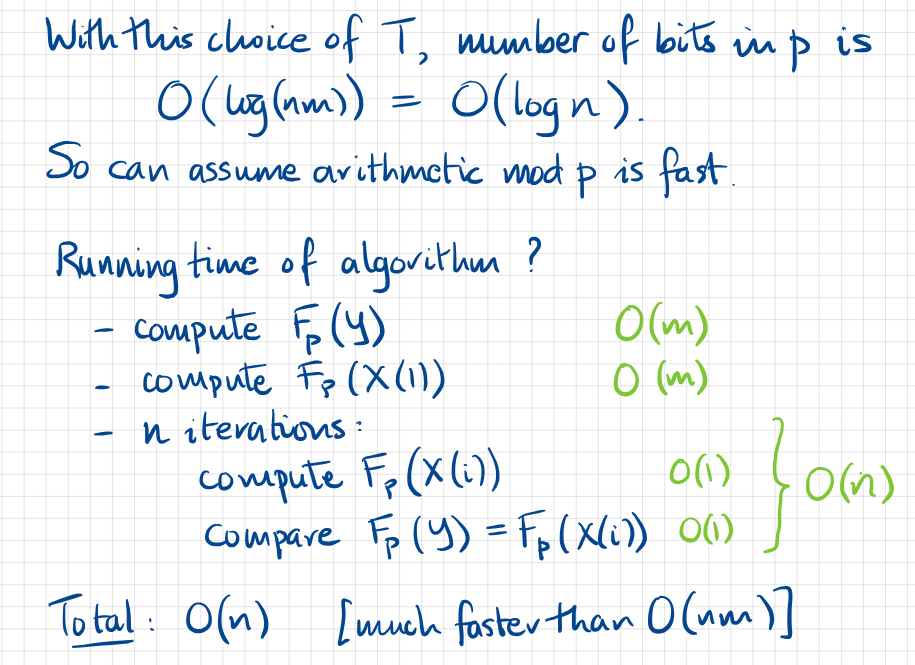 With this choice of T, number of bits in p is
O(log(nm)) = O(log n).
So can assume arithmetic mod p is fast.
Running time of algorithm ?
- compute Fp(Y) O(m)
- compute Fp(X(1)) O(m)
- n iterations:
compute Fp(X(i)) O(1)
O(n)
compare Fp(Y) = Fp(X(i)) O(1)
Total: O(n) [much faster than O(nm)]